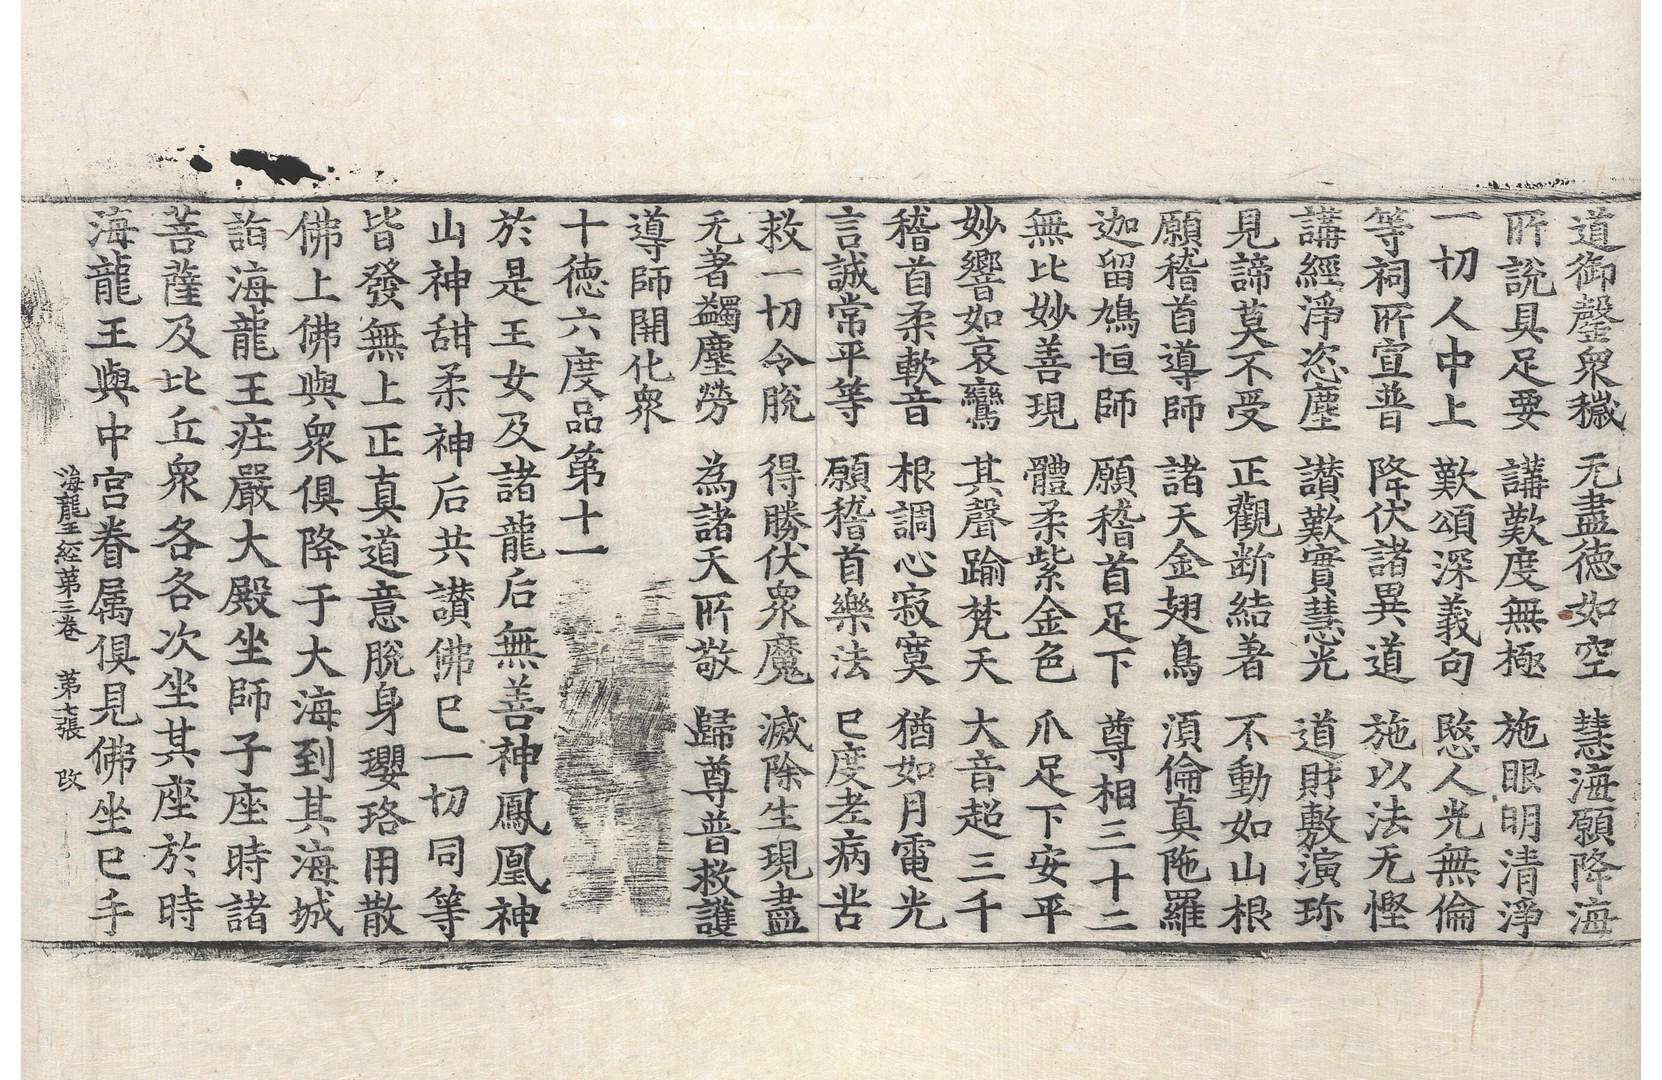 道御罄衆穢　无盡德如空　慧海願降海
所說具足要　講歎度無極　施眼明清淨
一切人中上　歎頌深義句　愍人光無倫
等祠所宣普　降伏諸異道　施以法无慳
講經淨恣塵　讃歎實慧光　道財敷演珎
見諦莫不受　正觀斷結著　不動如山根
願稽首導師　諸天金翅鳥　湏倫真陁羅
迦留鳩恒師　願稽首足下　尊相三十二
無比妙善現　體柔紫金色　爪足下安平
妙響如哀鸞　其聲踰梵天　大音超三千
稽首柔軟音　根調心寂寞　猶如月電光
言誠常平等　願稽首樂法　已度老病苦
救一切令脫　得勝伏衆魔　滅除生現盡
无著蠲塵勞　為諸天所敬　歸尊普救護
導師開化衆
十德六度品第十一
於是王女及諸龍后無善神鳳凰神
山神甜柔神后共讃佛已一切同等
皆發無上正真道意脫身瓔珞用散
佛上佛與衆俱降于大海到其海城
詣海龍王莊嚴大殿坐師子座時諸
菩薩及比丘衆各各次坐其座於時
海龍王與中宮眷属俱見佛坐已手
海龍王經第三卷　第七張　改